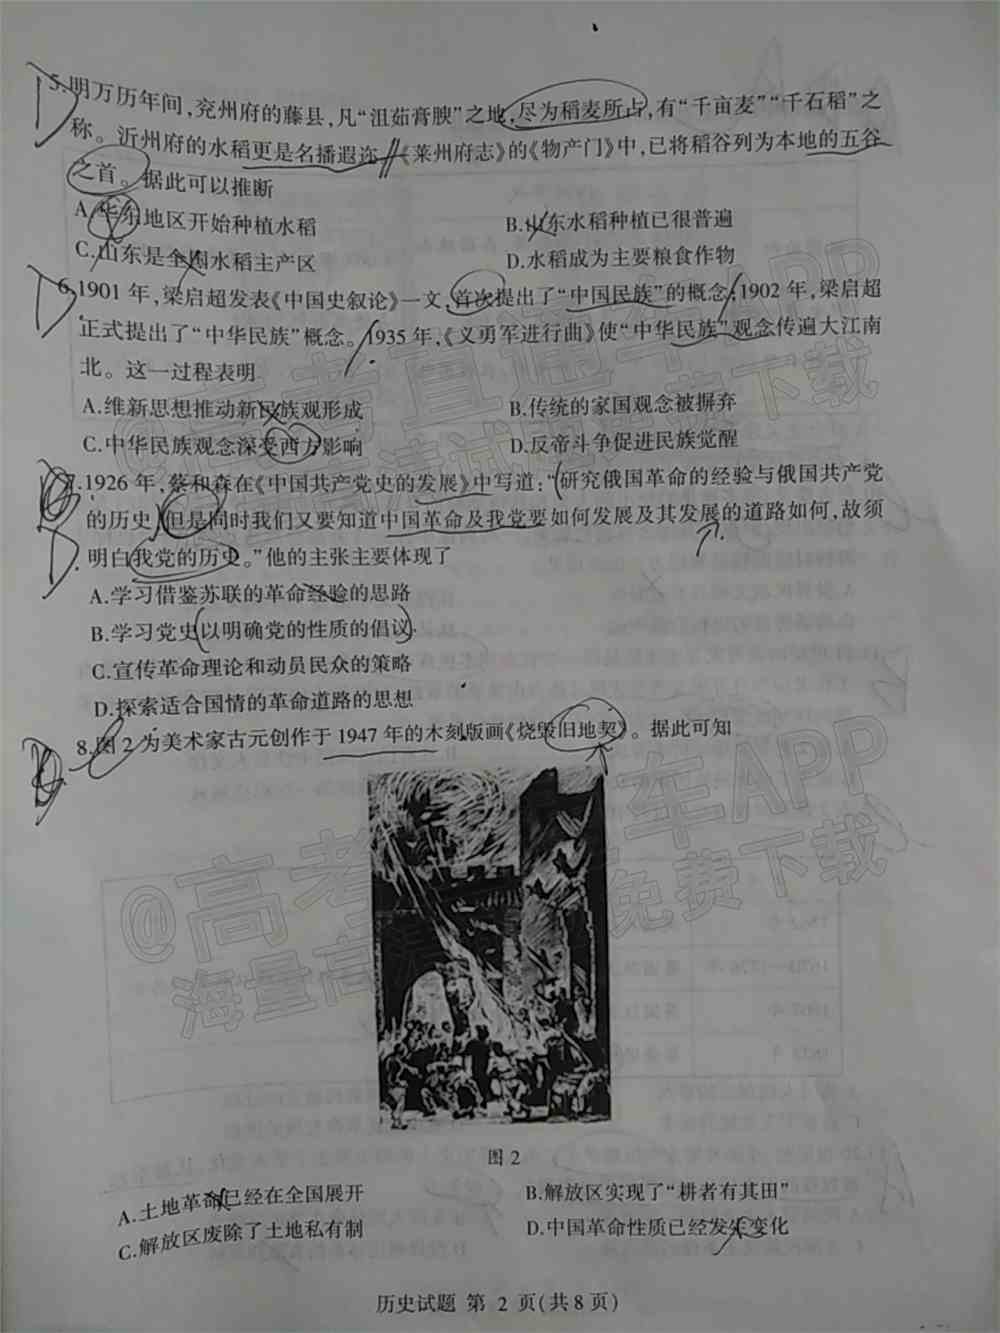 5.明万历年间,兖州府的藤县,凡“沮茹膏腴”之地,尽为稻麦所占,有“千亩麦”“千石稻”之
称。沂州府的水稻更是名播遐迩。《莱州府志》的《物产门》中,已将稻谷列为本地的五谷
之首。据此可以推断
A.华东地区开始种植水稻 B.山东水稻种植已很普遍
C.山东是全国水稻主产区 D.水稻成为主要粮食作物
6.1901年,梁启超发表《中国史叙论》一文,首次提出了“中国民族”的概念;1902年,梁启超
正式提出了“中华民族”概念。1935年,《义勇军进行曲》使“中华民族”观念传遍大江南
北。这一过程表明
A.维新思想推动新民族观形成 B.传统的家国观念被摒弃
C.中华民族观念深受西方影响 D.反帝斗争促进民族觉醒
7.1926年,蔡和森在《中国共产党史的发展》中写道:“研究俄国革命的经验与俄国共产党
的历史,但是同时我们又要知道中国革命及我党要如何发展及其发展的道路如何,故须
明白我党的历史。”他的主张主要体现了
A.学习借鉴苏联的革命经验的思路
B.学习党史以明确党的性质的倡议
C.宣传革命理论和动员民众的策略
D.探索适合国情的革命道路的思想
8.图2为美术家古元创作于1947年的木刻版画《烧毁旧地契》。据此可知
图2
A.土地革命已经在全国展开 B.解放区实现了“耕者有其田”
C.解放区废除了土地私有制 D.中国革命性质已经发生变化
历史试题 第 2 页(共8页)
@高考直通车APP
海量高清试题免费下载
@高考直通车APP
海量高清试题免费下载